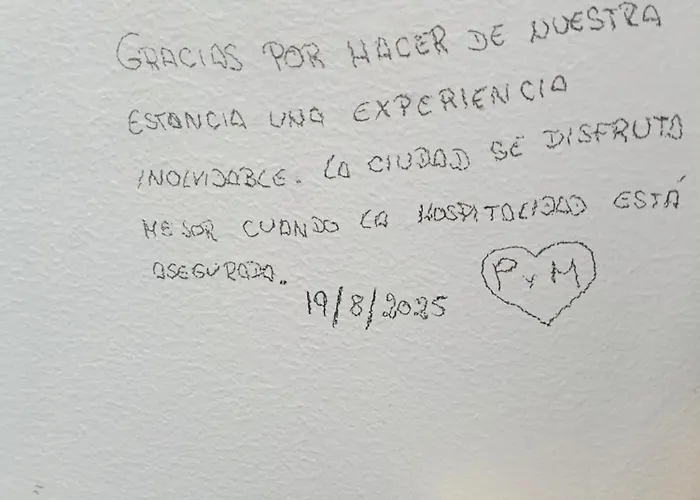 GRACIAS POR HACER DE NUESTRA
ESTANCIA UNA EXPERIENCIA
INOLVIDABLE. LA CIUDAD SE DISFRUTA
MEJOR CUANDO LA HOSPITALIDAD ESTÁ
ASEGURADA.
19/8/2025
P y M